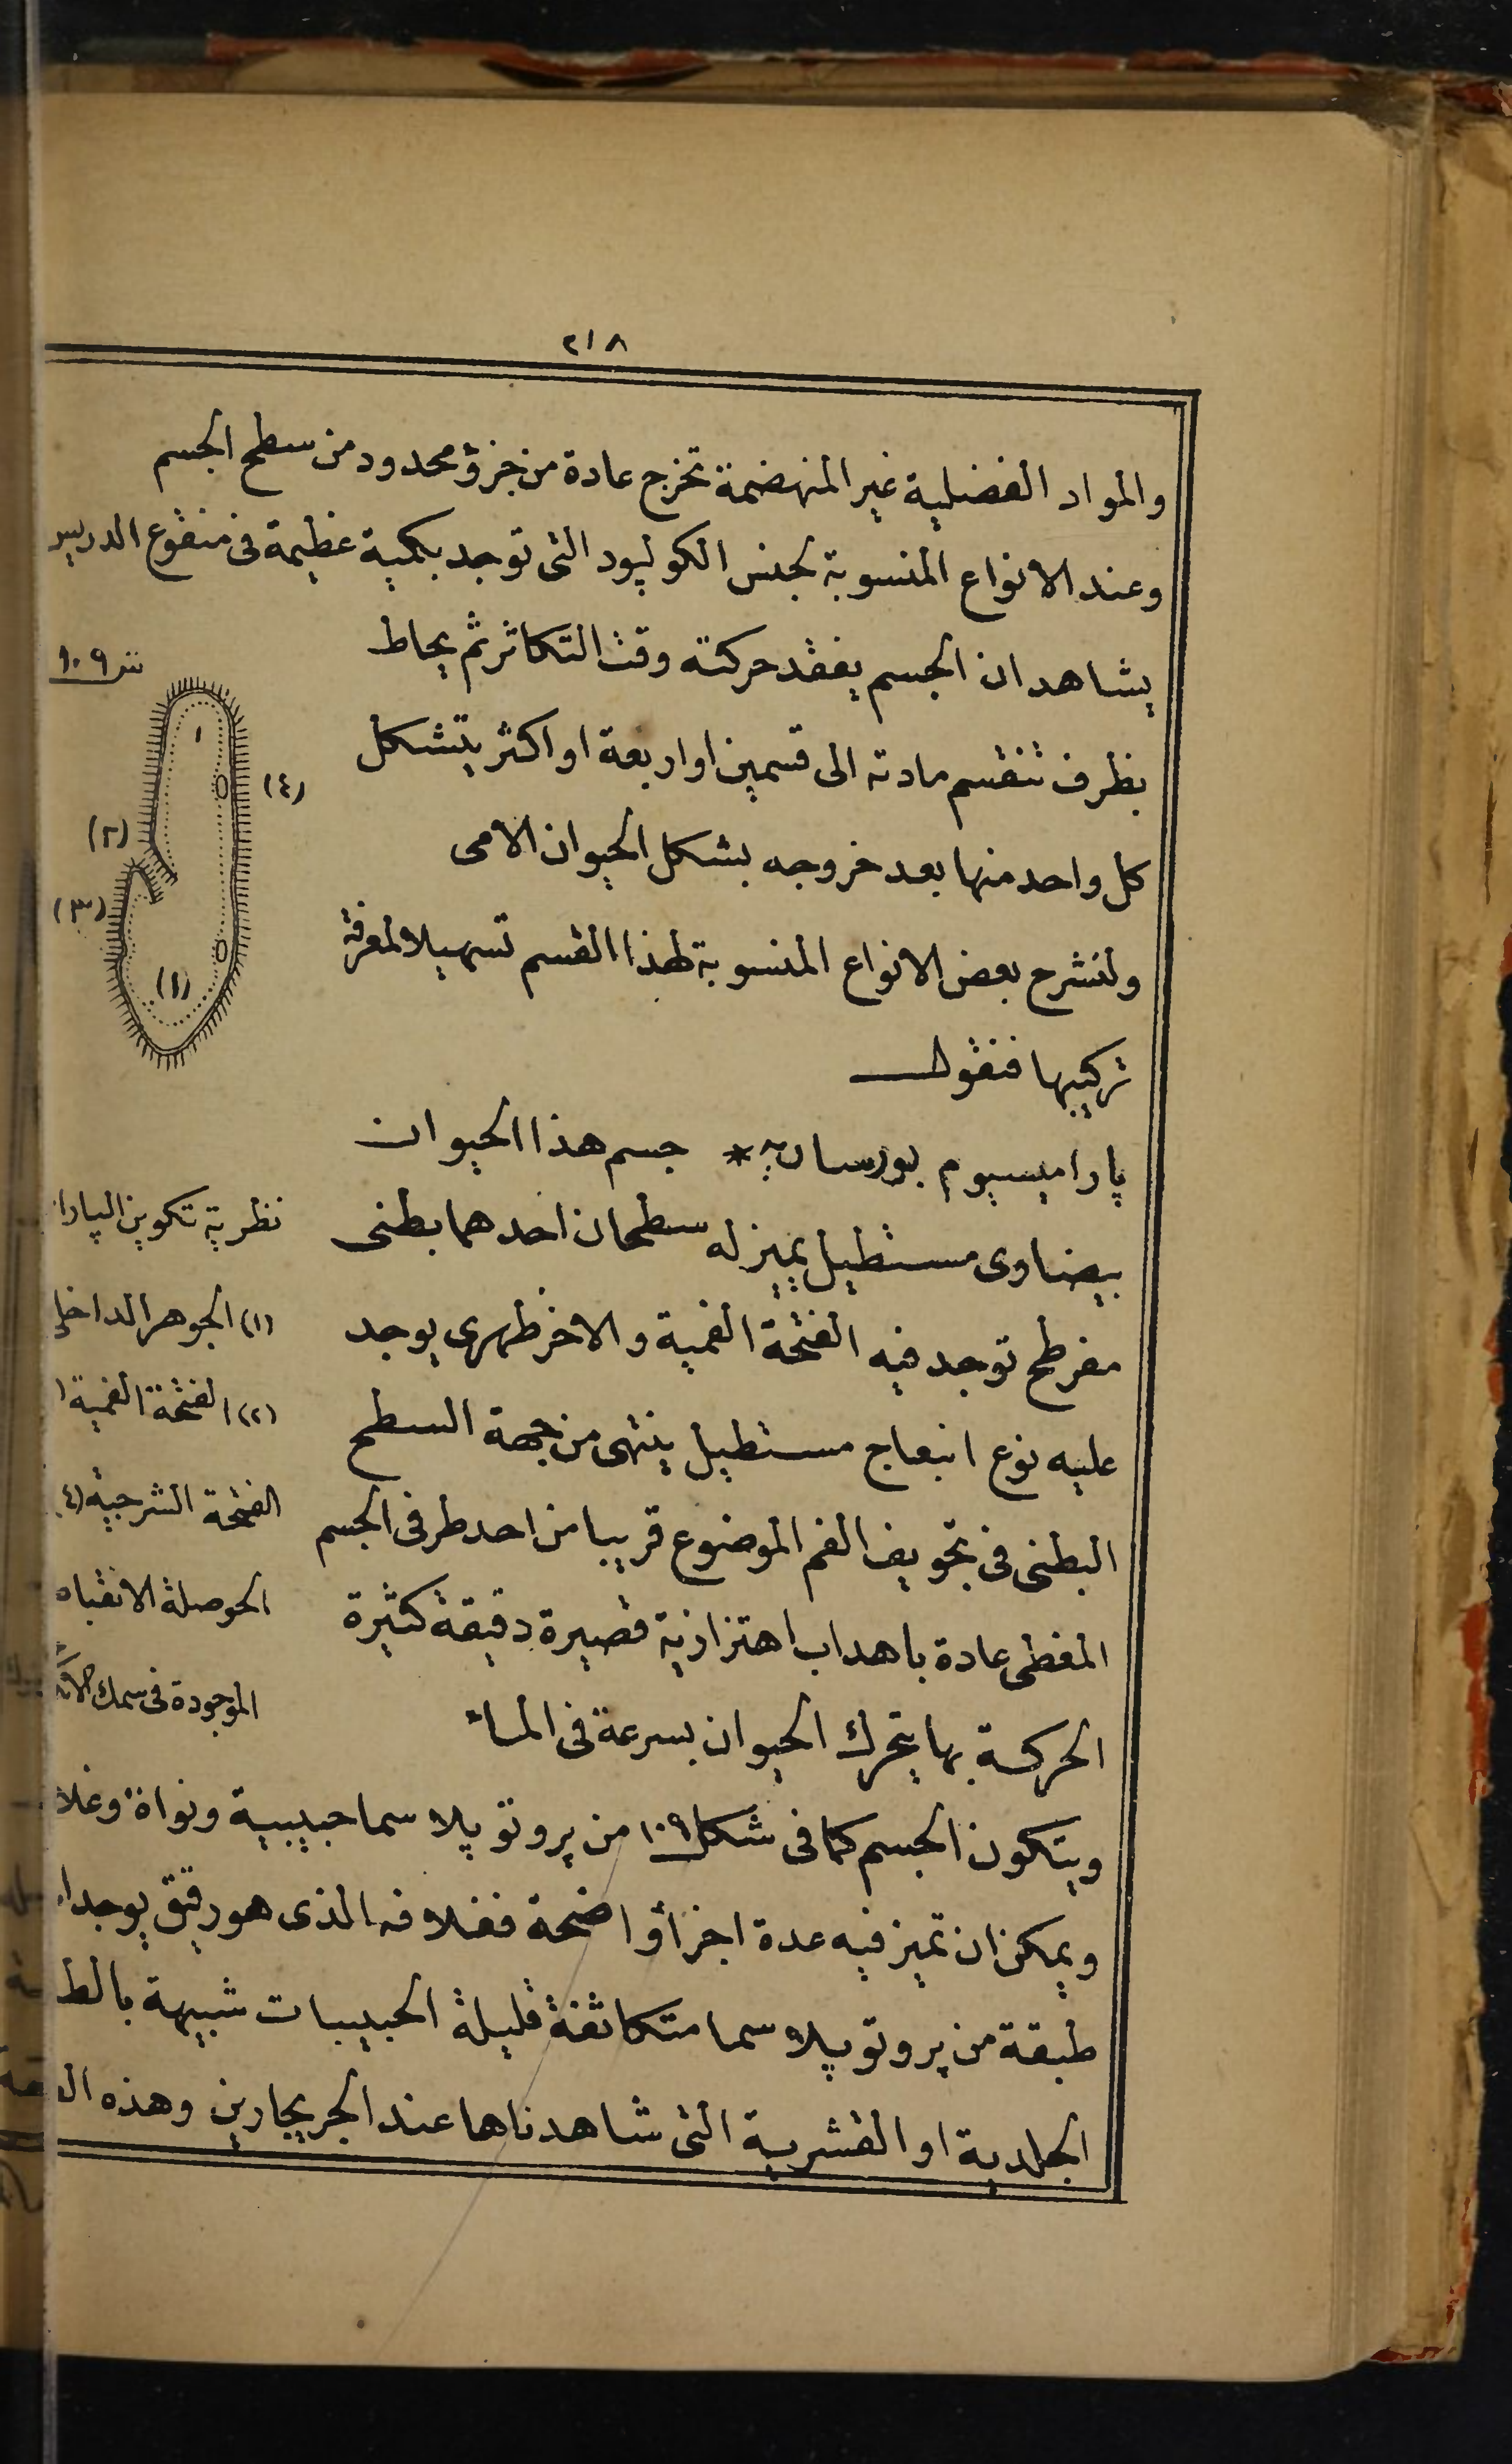 ٢١٨
والمواد الفضلية غير المنهضمة تخرج عادة من جزؤ محدود من سطح الجسم
وعند الانواع المنسوبة لجنس الكولپود التى توجد بكمية عظيمة فى منقوع الدريس
يشاهد ان الجسم يفقد حركته وقت التكاثر ثم يحاط
بظرف تنقسم مادته الى قسمين او اربعة او اكثر يتشكل
كل واحد منها بعد خروجه بشكل الحيوان الامى
ولنشرح بعض الانواع المنسوبة لهذا القسم تسهيلا لمعرفة
تركيبها فنقول
پاراميسيوم بورساريه * جسم هذا الحيوان
بيضاوى مستطيل يميز له سطحان احدهما بطنى
مفرطح توجد فيه الفتحة الفمية والاخر ظهرى يوجد
عليه نوع انبعاج مستطيل ينتهى من جهة السطح
البطنى فى تجويف الفم الموضوع قريبا من احد طرفى الجسم
المغطى عادة باهداب اهتزازية قصيرة دقيقة كثيرة
الحركة بها يتحرك الحيوان بسرعة فى الماء
ويتكون الجسم كما فى شكل ١٠٩ من پروتوپلاسما حبيبية ونواة وغلا
ويمكن ان تميز فيه عدة اجزأ واضحة فغلافه الذى هو رقيق يوجد
طبقة من پروتوپلاسما متكاثفة قليلة الحبيبات شبيهة بالط
الجلدية او القشرية التى شاهدناها عند الجريجارين وهذه
ش ١٠٩
١
(٤)
(٢)
(٣)
(١)
نظرية تكوين الپارا
(١) الجوهر الداخلى
(٢) الفتحة الفمية
الفتحة الشرجية (٤)
الحوصلة الانقباه
الموجودة فى سمك